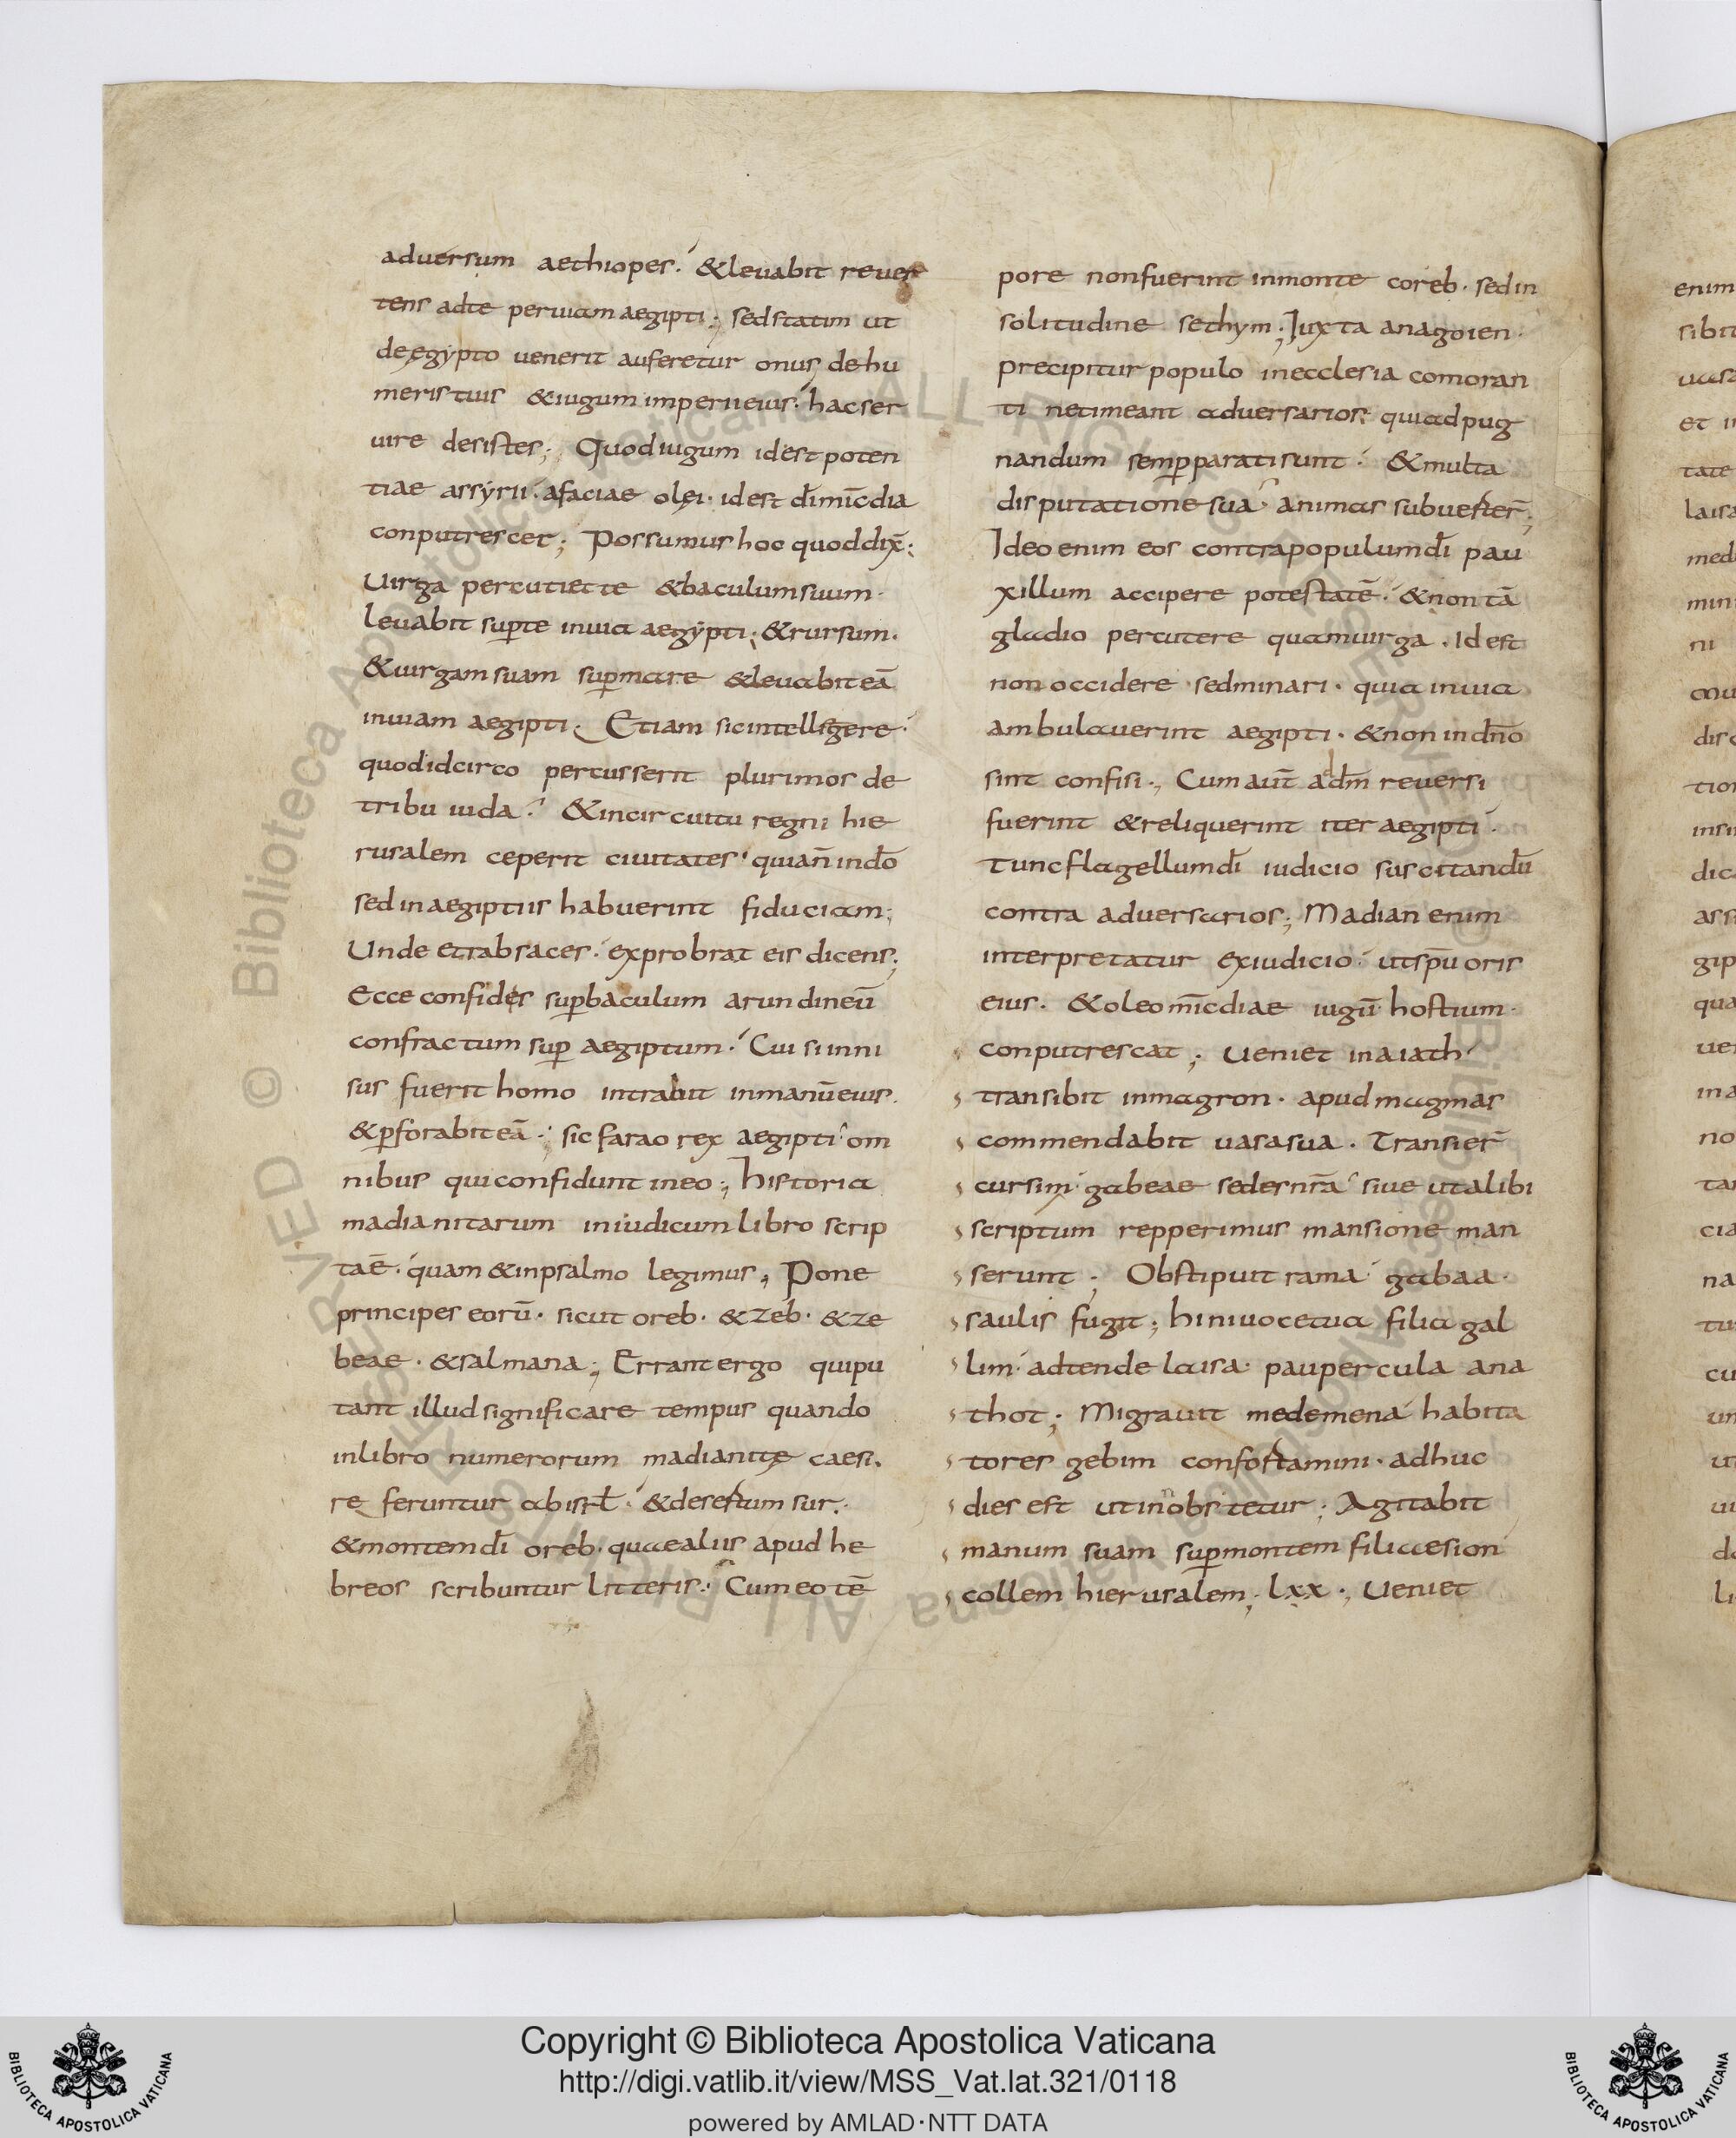 adversum aethiopes. &levabit rever
tens adte perviam aegipti; sedstatim ut
deęgypto venerit auferetur onus dehu
meris tuis &iugum imperii eius. hac ser
vire desistes; Quod iugum idest poten
tiae assyrii. afaciae olei. idest dī mīcdia
conputrescet; Possumus hoc quoddix̄;
Virga percutiet te &baculum suum.
levabit sup̄te invia aegypti; &rursum.
&virgam suam sup̄mare &levabit eā
inviam aegipti. Etiam sic intelligere.
quod idcirco percusserit plurimos de
tribu iuda. &incircuitu regni hie
rusalem ceperit civitates. quian̄ indō
sed inaegiptiis habuerint fiduciam;
Unde etrabsaces. exprobrat eis dicens;
Ecce confides sup̄baculum arundineū
confractum sup̄ aegiptum. Cui si inni
sus fuerit homo intrabit inmanūeius.
&p̄forabit eā; sic farao rex aegipti om
nibus qui confidunt ineo; historia
madianitarum in iudicum libro scrip
taē. quam &inpsalmo legimus; Pone
principes eorū. sicut oreb. &zeb. &ze
beae. &salmana; Errant ergo qui pu
tant illud significare tempus quando
inlibro numerorum madianitę caesi.
re feruntur abisrł. &desertum sur.
&montem dī oreb. quae aliis apud he
breos scribuntur litteris. Cum eo tē
pore nonfuerint inmonte coreb. sed in
solitudine sethym; Iuxta anagoien.
precipitur populo inecclesia comoran
ti netimeant adversarios. quiadpug
nandum semp̄parati sunt. &multa
disputatione sua. animas subverter̄;
Ideo enim eos contrapopulum dī pau
xillum accipere potestatē. &non tā
gladio percutere quamvirga. Idest
non occidere sedminari. quia invia
ambulaverint aegipti. &non indn̄o
sint confisi; Cum aut̄ addm̄ reversi
fuerint &reliquerint iter aegipti.
Tunc flagellum dī iudicio suscitandū
contra adversarios; Madian enim
interpretatur exiudicio. utsp̄u oris
eius. &oleo mīcdiae iugū hostium.
conputrescat; Veniet inaiath
transibit inmagron. apud magmas
commendabit vasa sua. Transier̄
cursim gabeae sedes nr̄a sive ut alibi
scriptum repperimus mansione man
serunt; Obstipuit rama gabaa.
saulis fugit; hinivocetua filia gal
lim. adtende laisa. paupercula ana
thot; Migravit medemena habita
tores gebim confortamini. adhuc
dies est ut in nobs tetur; Agitabit
manum suam sup̄montem filiaesion
collem hierusalem; lxx.; Veniet
Copyright © Biblioteca Apostolica Vaticana
http://digi.vatlib.it/view/MSS_Vat.lat.321/0118
powered by AMLAD·NTT DATA
BIBLIOTECA APOSTOLICA VATICANA
BIBLIOTECA APOSTOLICA VATICANA